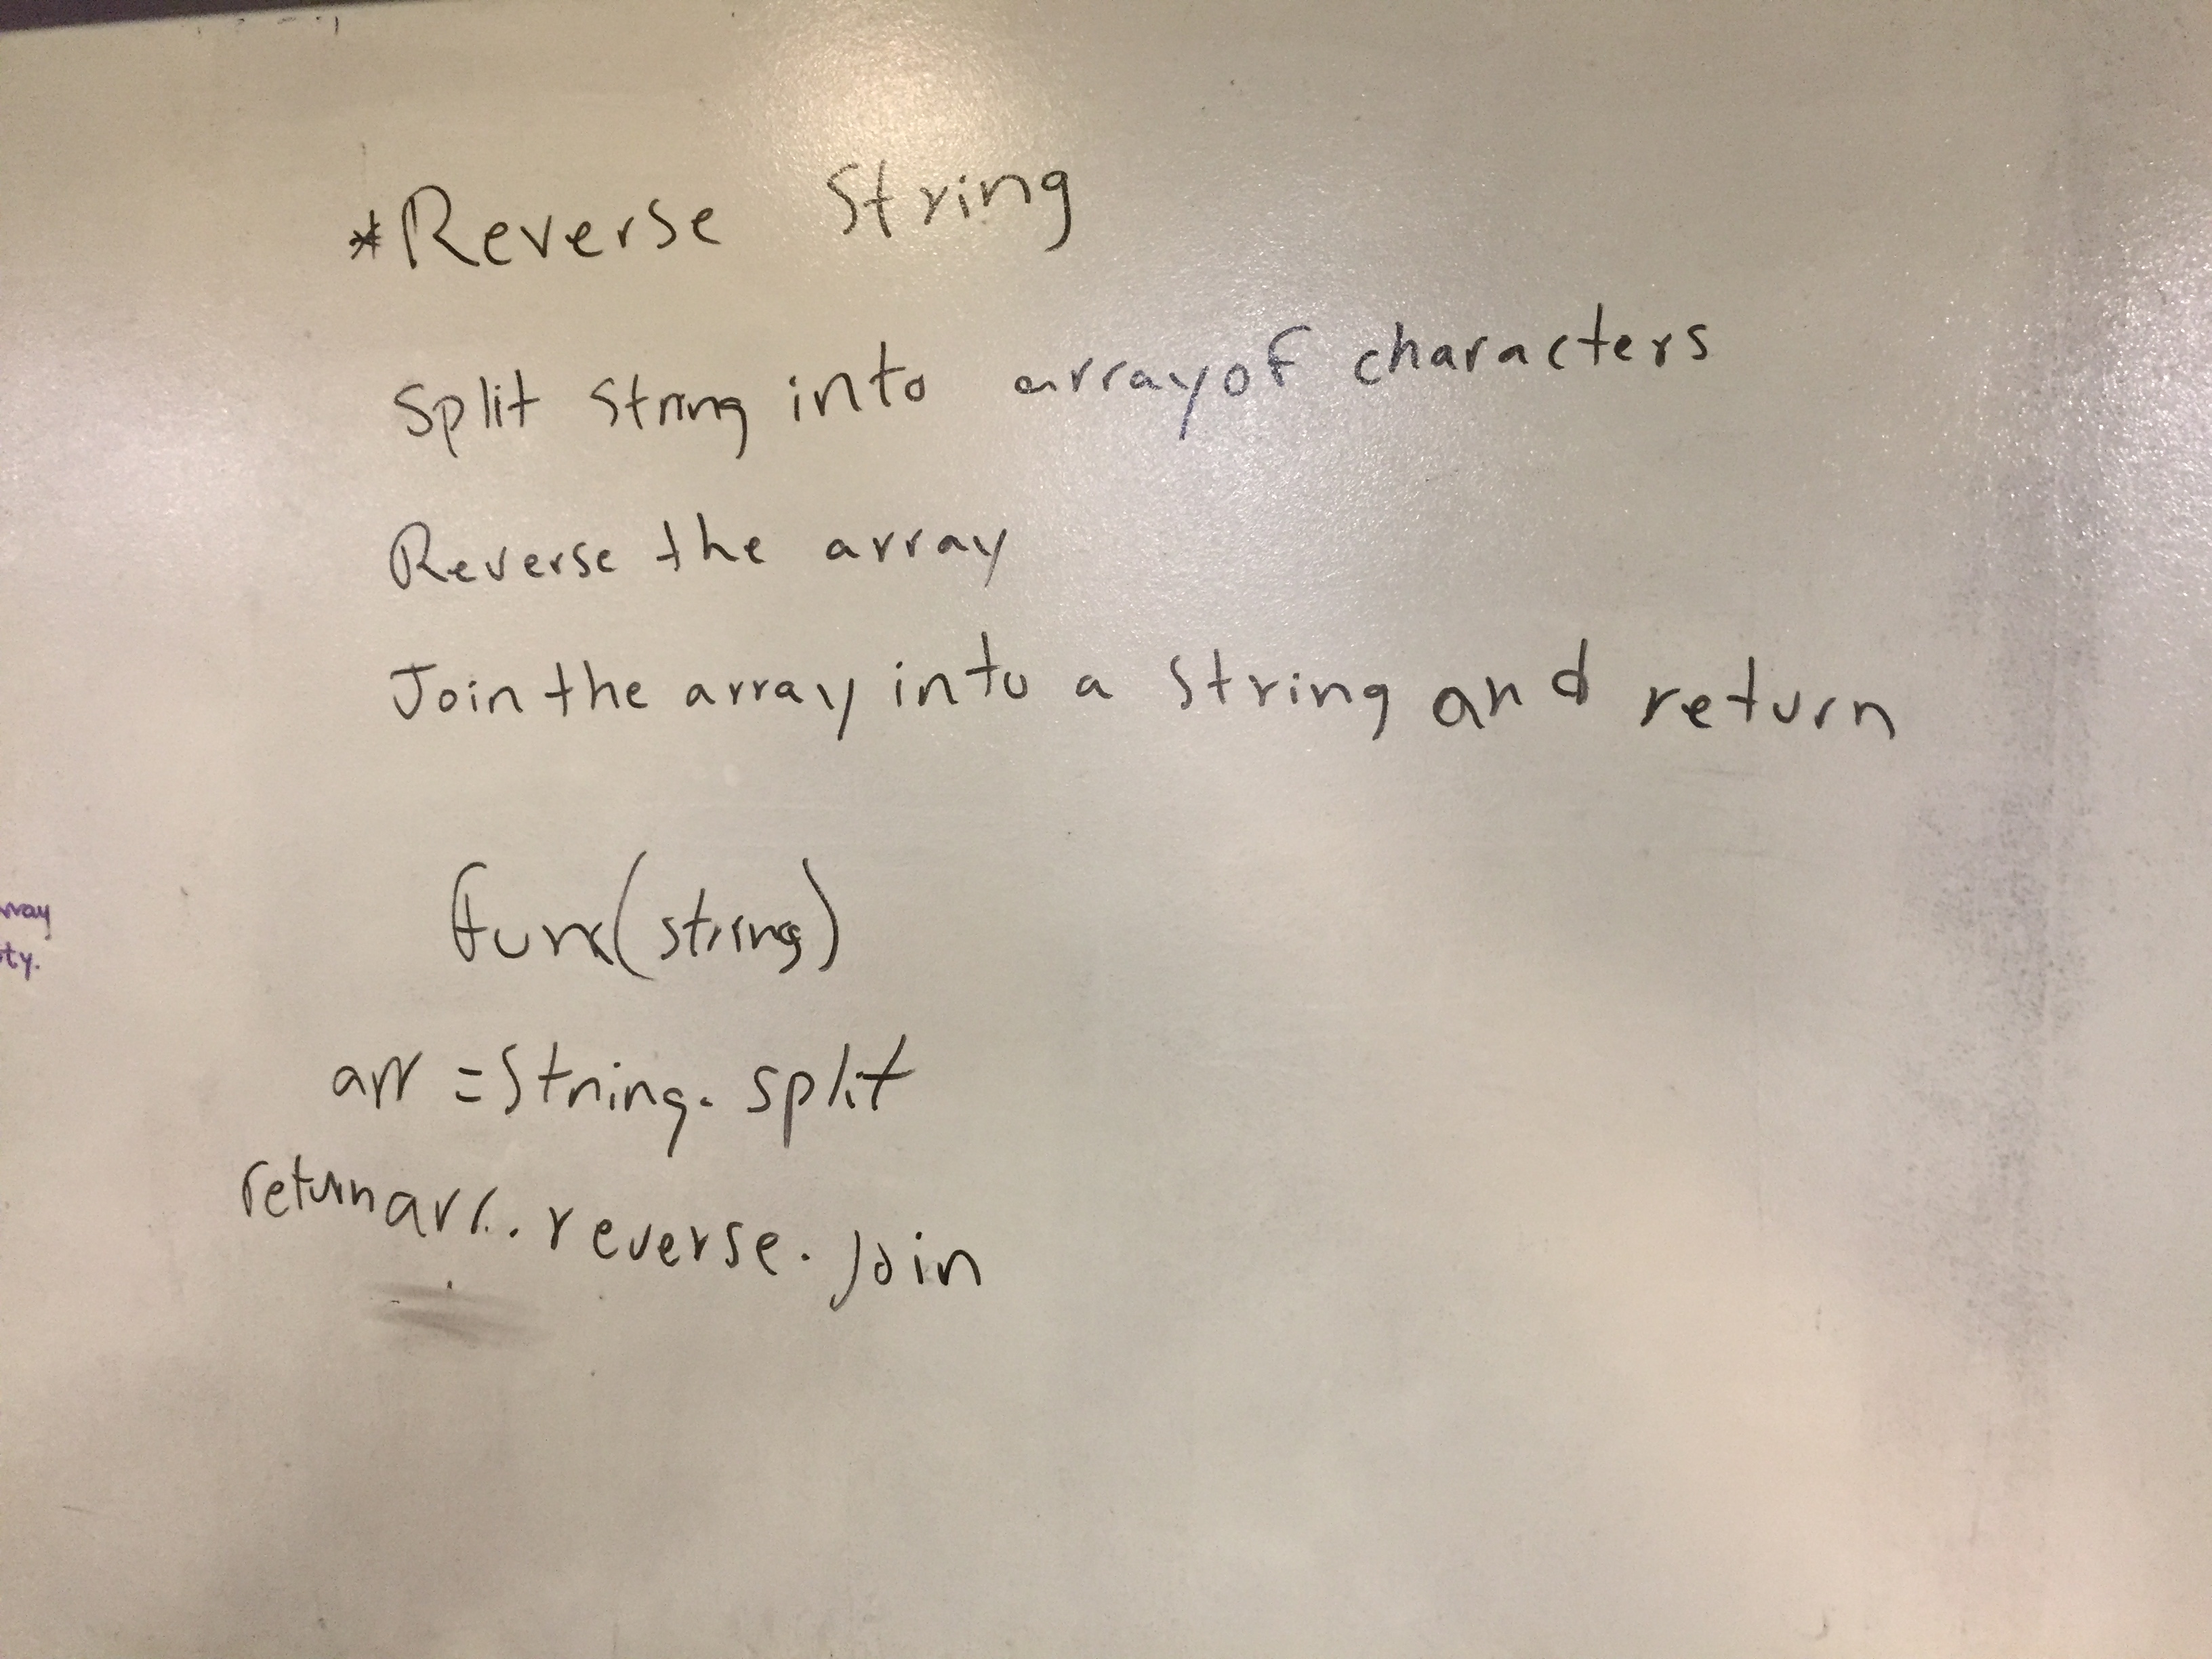 *Reverse String
Split String into array of characters
Reverse the array
Join the array into a String and return
func(string)
arr = String. split
return arr. reverse. join
ty.